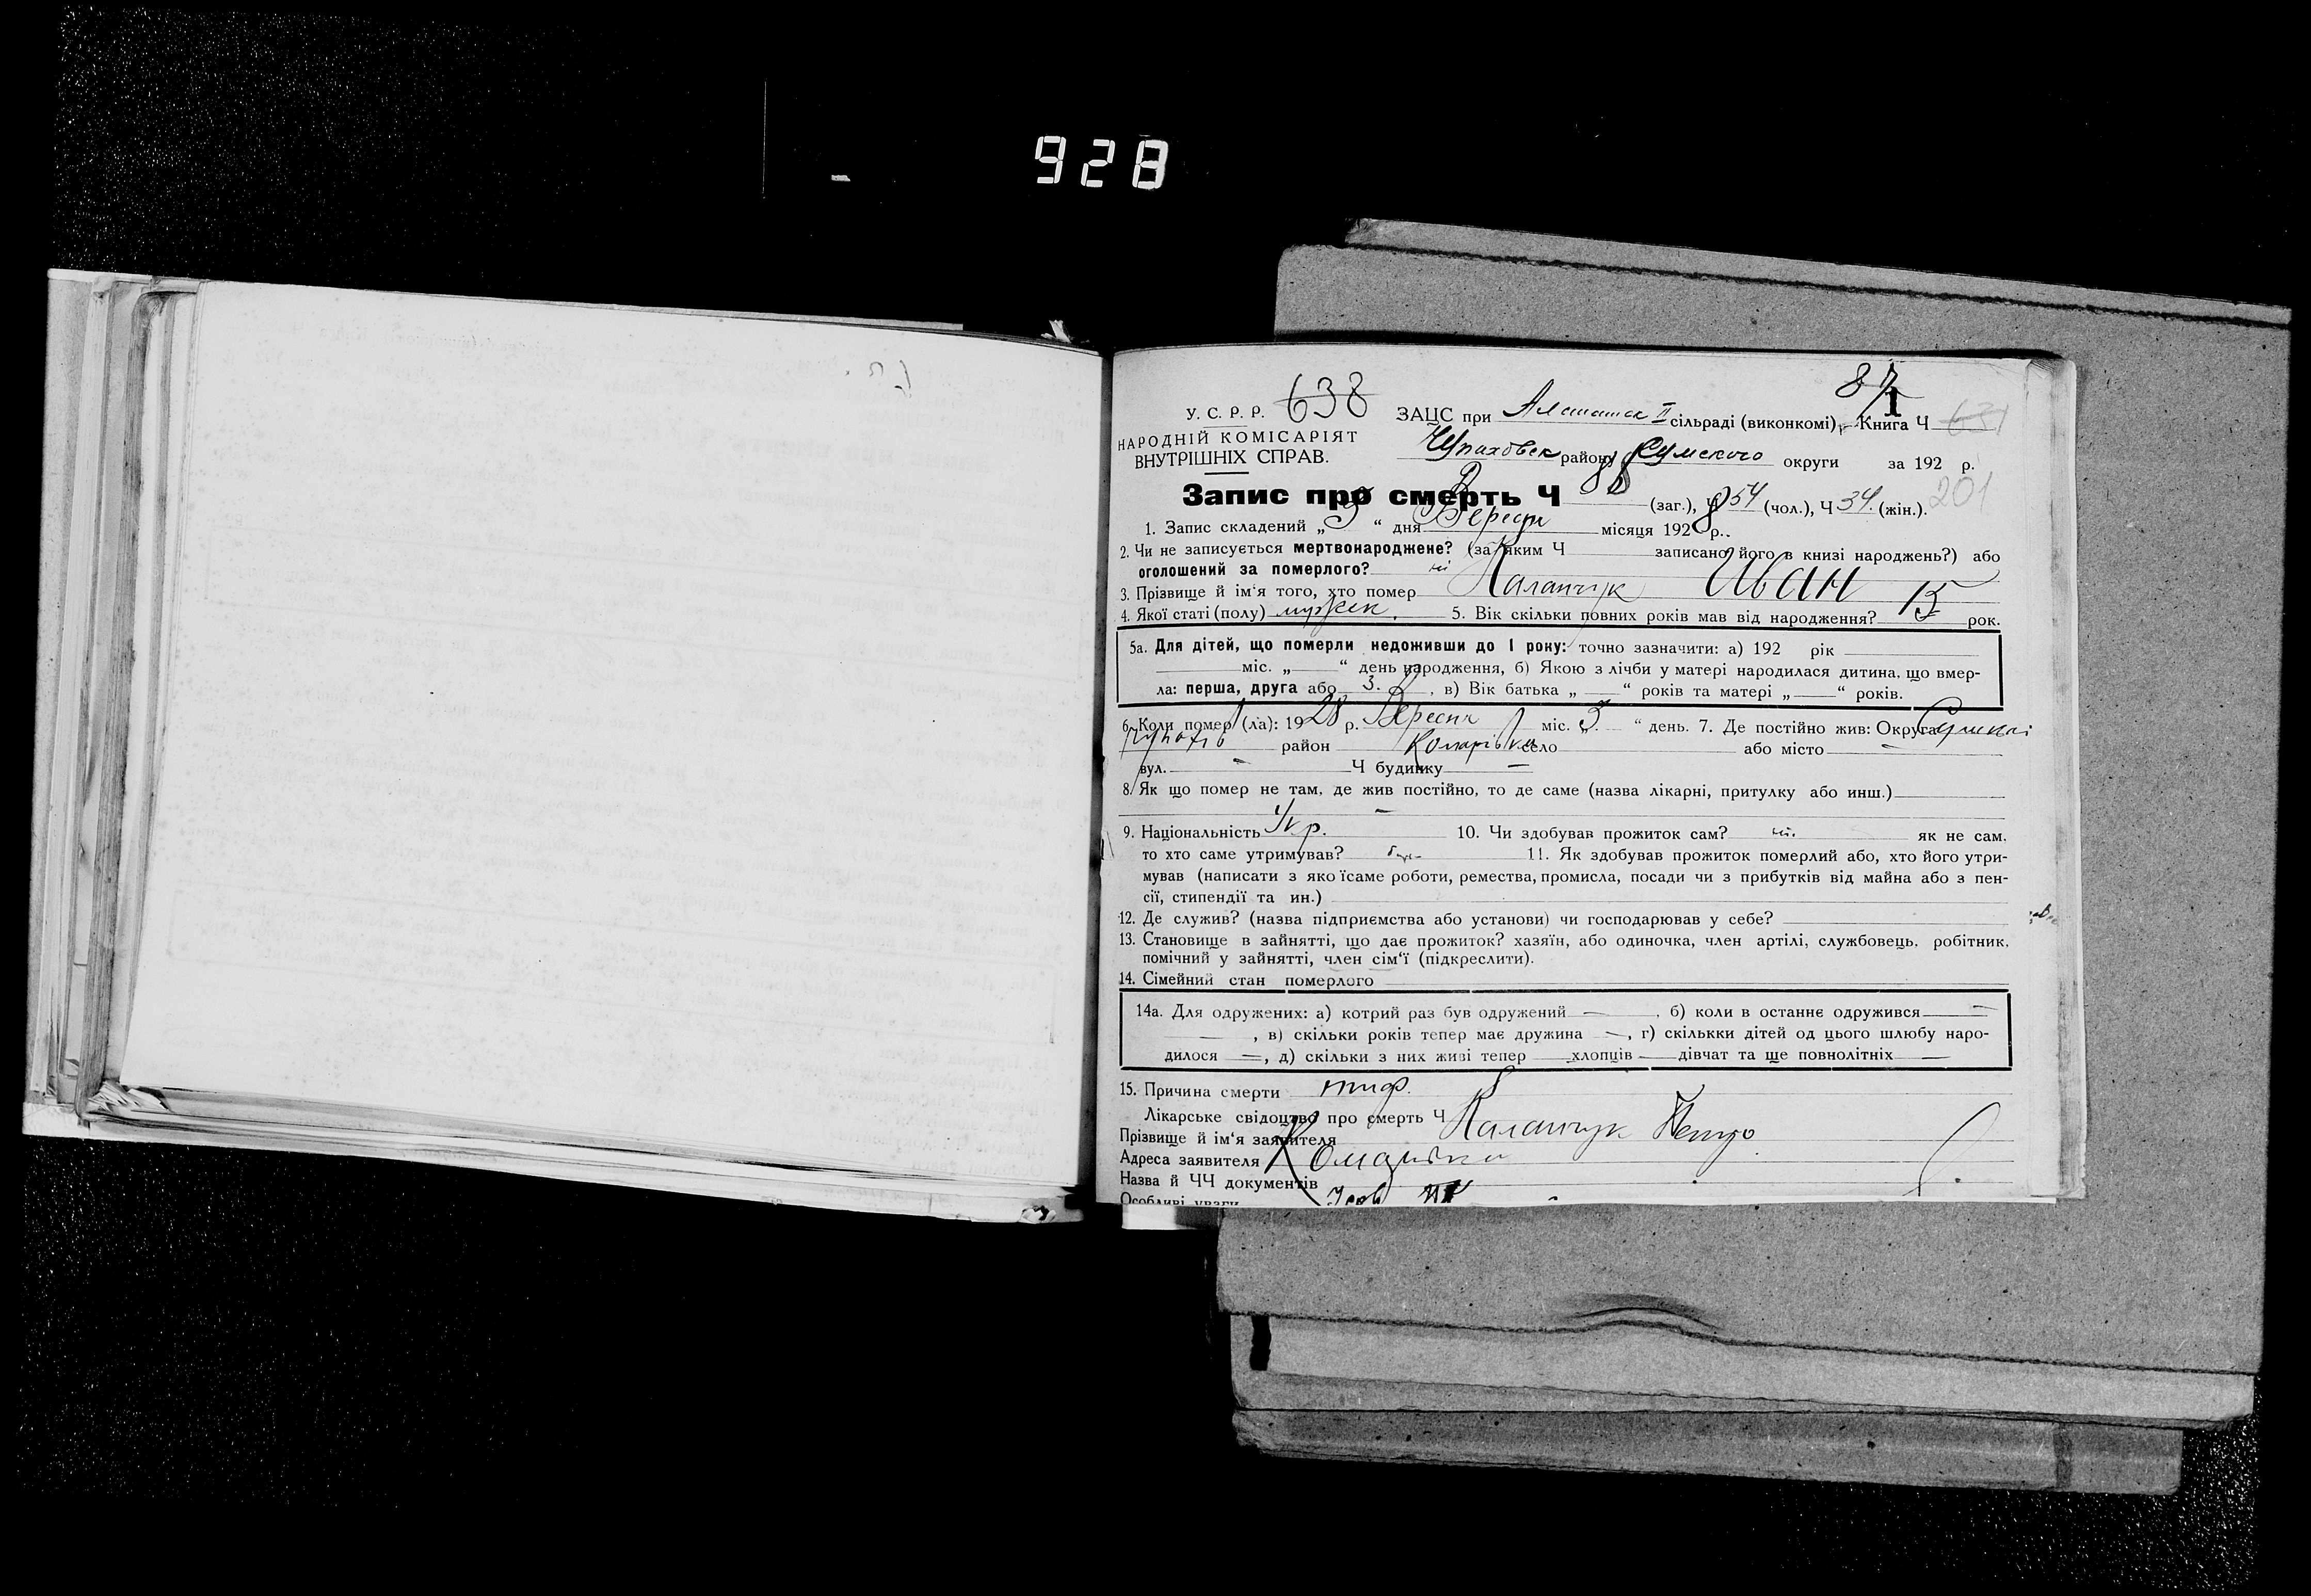 928
638
87
1
У. С. Р. Р.
НАРОДНІЙ КОМІСАРІЯТ
ВНУТРІШНІХ СПРАВ.
ЗАЦС при II сільраді (виконкомі), Книга Ч 631
район Сумского округи за 192 р.
Запис про смерть Ч 88 (заг.), Ч 54 (чол.), Ч 34. (жін.). 201
1. Запис складений „3“ дня Вересн місяця 1928 р..
2. Чи не записується мертвонароджене? (за яким Ч записано його в книзі народжень?) або
оголошений за померлого? ні
3. Прізвище й ім‘я того, хто помер Каланчук Иван
4. Якої статі (полу) мужск. 5. Вік скільки повних років мав від народження? 15 рок.
5а. Для дітей, що померли недоживши до 1 року: точно зазначити: а) 192 рік
міс. „ “ день народження, б) Якою з лічби у матері народилася дитина, що вмер-
ла: перша, друга або 3. , в) Вік батька „ — “ років та матері „ — “ років.
6. Коли помер (ла): 1928 р. Вересня міс. „3. “ день. 7. Де постійно жив: Округа Сумськ
район Комарівка село або місто —
вул. — Ч будинку —
8. Як що помер не там, де жив постійно, то де саме (назва лікарні, притулку або инш.)
—
9. Національність Укр. 10. Чи здобував прожиток сам? ні. як не сам,
то хто саме утримував? 11. Як здобував прожиток померлий або, хто його утри-
мував (написати з якоїсаме роботи, ремества, промисла, посади чи з прибутків від майна або з пен-
сії, стипендії та ин.)
12. Де служив? (назва підприємства або установи) чи господарював у себе?
13. Становище в зайнятті, що дає прожиток? хазяїн, або одиночка, член артілі, службовець, робітник,
помічний у зайнятті, член сім‘ї (підкреслити).
14. Сімейний стан померлого
14а. Для одружених: а) котрий раз був одружений — , б) коли в останнє одружився —
— , в) скільки років тепер має дружина — , г) скількки дітей од цього шлюбу наро-
дилося —, д) скільки з них живі тепер — хлопців — дівчат та ще повнолітніх —
15. Причина смерти тиф.
Лікарське свідоцтво про смерть Ч
Прізвище й ім‘я заявителя Каланчук Петро
Адреса заявителя Комарівка
Назва й ЧЧ документів
Особливі уваги